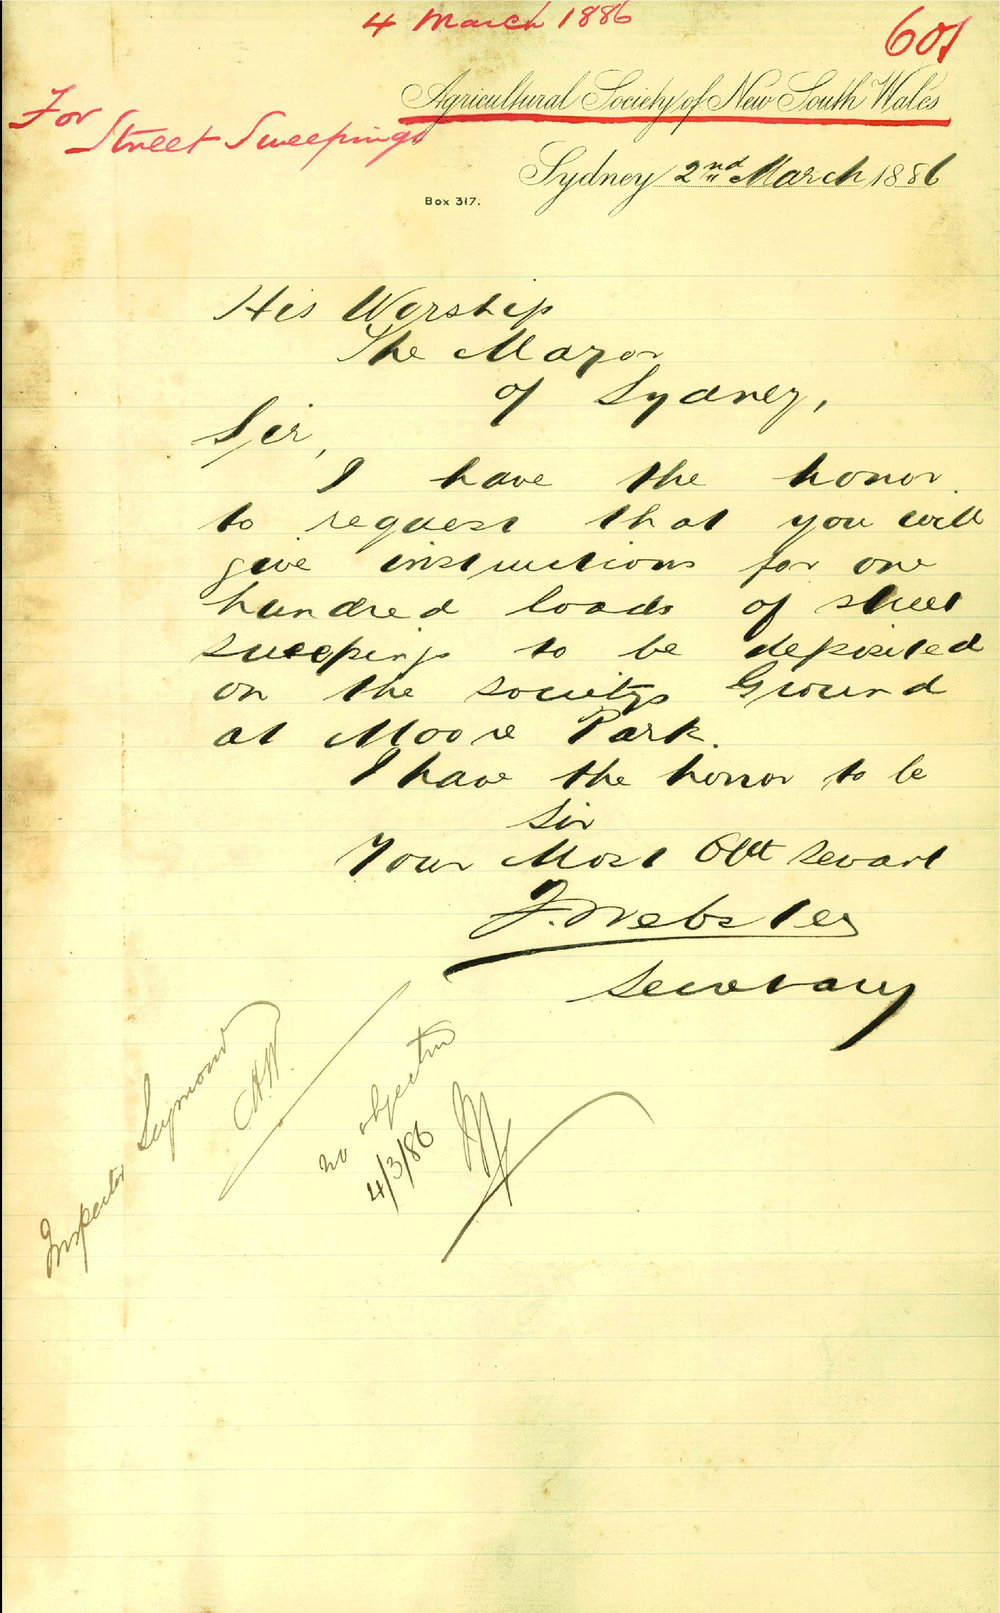 4 March 1886
601
For
Street Sweepings
Agricultural Society of New South Wales
Sydney 2nd March 1886
Box 317.
His Worship
The Mayor
of Sydney,
Sir,
I have the honor
to request that you will
give instructions for one
hundred loads of street
sweepings to be deposited
on the societys Ground
at Moore Park.
I have the honor to be
Sir
Your Most Obt servant
F. Webster
Secretary
Inspector Seymour
no objection
4/3/86